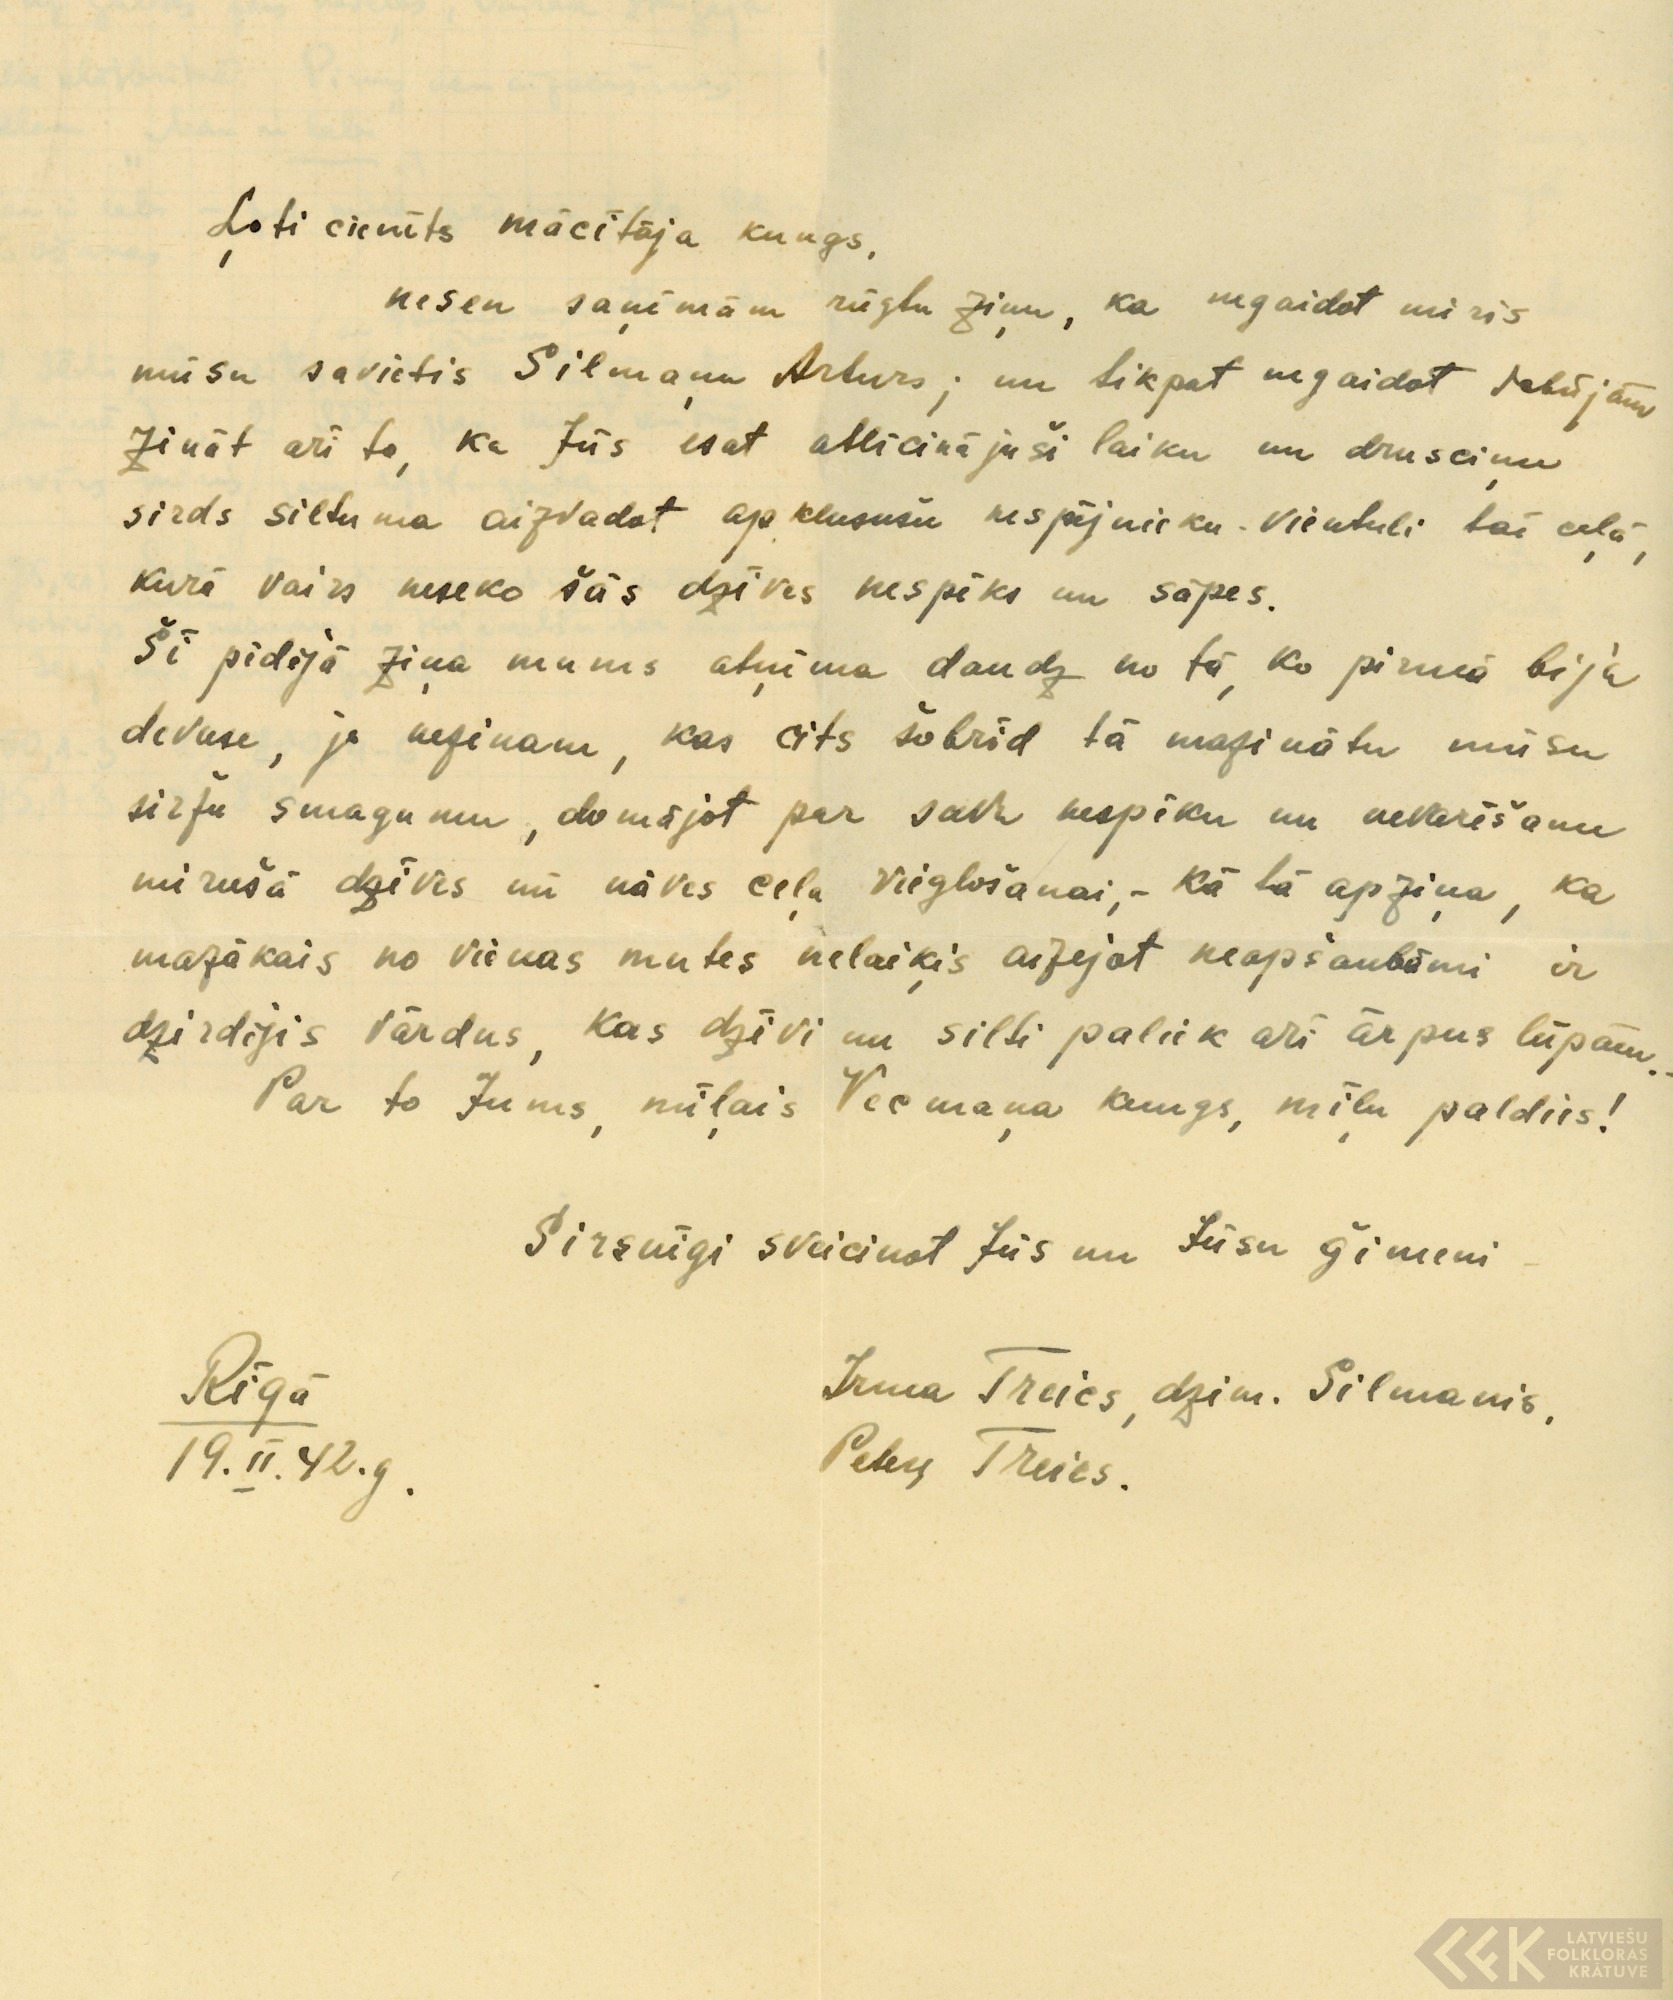 Ļoti cienīts mācītāja kungs,
nesen saņēmām rūgtu ziņu, ka negaidot miris
mūsu savietis Silmaņu Arturs; un tikpat negaidot dabūjām
zināt arī to, ka Jūs esat atlicinājuši laiku un drusciņu
sirds siltuma aizvadot apklusušu nespējnieku-vientuli tai ceļā,
kurā vairs neseko šās dzīves nespēks un sāpes.
Šī pēdējā ziņa mums atņēma daudz no tā, ko pirmā bija
devuse, jo nezinam, kas cits šobrīd tā mazinātu mūsu
siržu smagumu, domājot par savu nespēku un nevarēšanu
mirušā dzīves un nāves ceļa vieglošanai,- kā tā apziņa, ka
mazākais no vienas mutes nelaiķis aizejot neapšaubāmi ir
dzirdējis vārdus, kas dzīvi un silti paliek arī ārpus lūpām.-
Par to Jums, mīļais Vecmaņa kungs, mīļu paldies!
Sirsnīgi sveicinot Jūs un Jūsu ģimeni
Rīgā
19.II.42.g.
Irma Treics, dzim. Silmanis,
Peters Treics.
LATVIEŠU
FOLKLORAS
KRĀTUVE